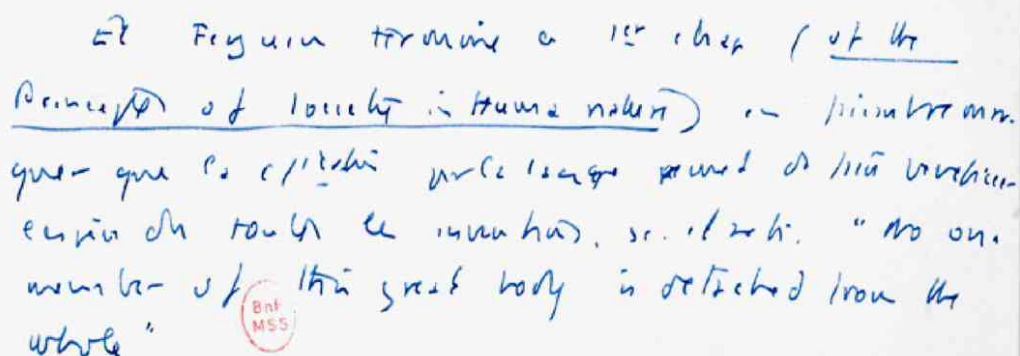 Et Ferguson termine ce 1er chap (of the
Principles of Society in Human nature) en faisant remar-
quer que la par le langage permet de
de toutes les inventions, "No one
member of this great body is detached from the
whole"
BnF
MSS